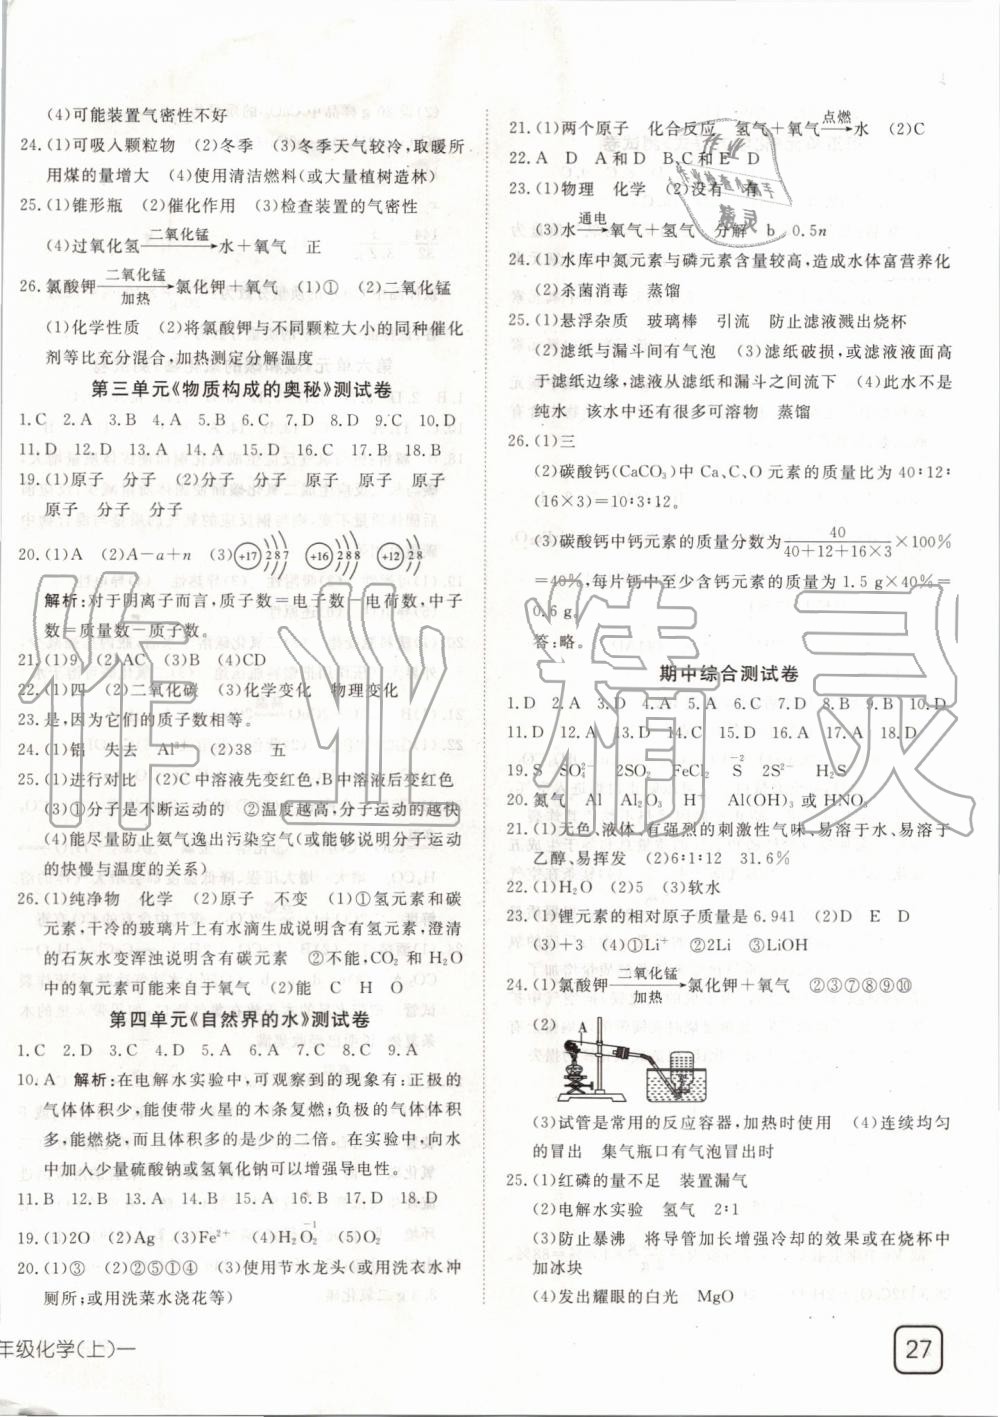 (4)可能装置气密性不好
24.(1)可吸入颗粒物 (2)冬季 (3)冬季天气较冷,取暖所
用煤的量增大 (4)使用清洁燃料(或大量植树造林)
25.(1)锥形瓶 (2)催化作用 (3)检查装置的气密性
(4)过氧化氢 二氧化锰→ 水+氧气 正
26.氯酸钾 二氧化锰/加热→ 氯化钾+氧气 (1)① (2)二氧化锰
(1)化学性质 (2)将氯酸钾与不同颗粒大小的同种催化
剂等比充分混合,加热测定分解温度
第三单元《物质构成的奥秘》测试卷
1.C 2.A 3.B 4.A 5.B 6.C 7.D 8.D 9.C 10.D
11.D 12.D 13.A 14.D 15.D 16.C 17.B 18.B
19.(1)原子 分子 (2)分子 分子 原子 原子 原子
原子 分子 分子
20.(1)A (2)A-a+n (3) +17 2 8 7 +16 2 8 8 +12 2 8
解析:对于阴离子而言,质子数=电子数-电荷数,中子
数=质量数-质子数。
21.(1)9 (2)AC (3)B (4)CD
22.(1)四 (2)二氧化碳 (3)化学变化 物理变化
23.是,因为它们的质子数相等。
24.(1)铝 失去 Al³⁺ (2)38 五
25.(1)进行对比 (2)C中溶液先变红色,B中溶液后变红色
(3)①分子是不断运动的 ②温度越高,分子运动的越快
(4)能尽量防止氨气逸出污染空气(或能够说明分子运动
的快慢与温度的关系)
26.(1)纯净物 化学 (2)原子 不变 (1)①氢元素和碳
元素,干冷的玻璃片上有水滴生成说明含有氢元素,澄清
的石灰水变浑浊说明含有碳元素 ②不能,CO₂和H₂O
中的氧元素可能来自于氧气 (2)能 C H O
第四单元《自然界的水》测试卷
1.C 2.D 3.C 4.D 5.A 6.C 7.C 8.C 9.A
10.A 解析:在电解水实验中,可观察到的现象有:正极的
气体体积少,能使带火星的木条复燃;负极的气体体积
多,能燃烧,而且体积多的是少的二倍。在实验中,向水
中加入少量硫酸钠或氢氧化钠可以增强导电性。
11.B 12.B 13.A 14.D 15.A 16.B 17.D 18.D
19.(1)2O (2)Ag (3)Fe²⁺ (4)H₂O₂ -1 (5)O₂
20.(1)③ (2)②⑤①④ (3)使用节水龙头(或用洗衣水冲
厕所;或用洗菜水浇花等)
年级化学(上)一
21.(1)两个原子 化合反应 氢气+氧气 点燃→ 水 (2)C
22.A D A和D B、C和E D
23.(1)物理 化学 (2)没有 有
(3)水 通电→ 氧气+氢气 分解 b 0.5n
24.(1)水库中氮元素与磷元素含量较高,造成水体富营养化
(2)杀菌消毒 蒸馏
25.(1)悬浮杂质 玻璃棒 引流 防止滤液溅出烧杯
(2)滤纸与漏斗间有气泡 (3)滤纸破损,或滤液液面高
于滤纸边缘,滤液从滤纸和漏斗之间流下 (4)此水不是
纯水 该水中还有很多可溶物 蒸馏
26.(1)三
(2)碳酸钙(CaCO₃)中Ca、C、O元素的质量比为40∶12∶
(16×3)=10∶3∶12。
(3)碳酸钙中钙元素的质量分数为 40/(40+12+16×3) ×100%
=40%,每片钙中至少含钙元素的质量为1.5 g×40%=
0.6 g。
答:略。
期中综合测试卷
1.D 2.A 3.D 4.A 5.A 6.C 7.D 8.B 9.B 10.D
11.D 12.A 13.D 14.C 15.A 16.A 17.A 18.D
19.S SO₄²⁻ 2SO₂ FeCl₂ S -2 2S²⁻ H₂S
20.氮气 Al Al₂O₃ H Al(OH)₃或HNO₃
21.(1)无色、液体、有强烈的刺激性气味、易溶于水、易溶于
乙醇、易挥发 (2)6∶1∶12 31.6%
22.(1)H₂O (2)5 (3)软水
23.(1)锂元素的相对原子质量是6.941 (2)D E D
(3)+3 (4)①Li⁺ ②2Li ③LiOH
24.(1)氯酸钾 二氧化锰/加热→ 氯化钾+氧气 ②③⑦⑧⑨⑩
(2) A
(3)试管是常用的反应容器,加热时使用 (4)连续均匀
的冒出 集气瓶口有气泡冒出时
25.(1)红磷的量不足 装置漏气
(2)电解水实验 氢气 2∶1
(3)防止暴沸 将导管加长增强冷却的效果或在烧杯中
加冰块
(4)发出耀眼的白光 MgO
27
作业精灵